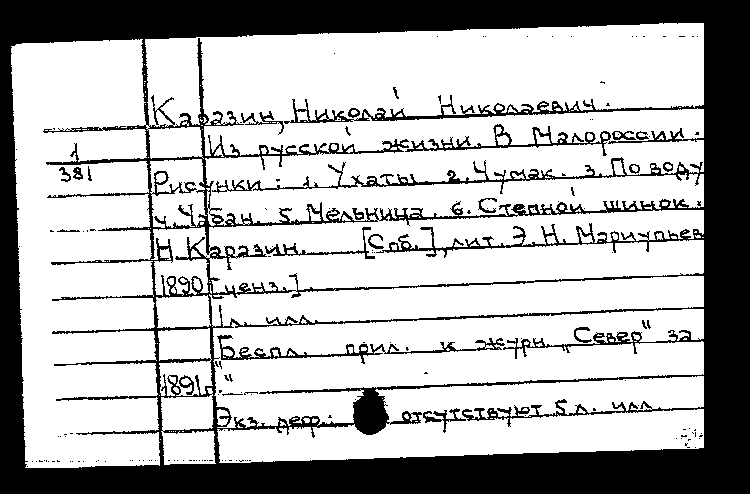 Каразин, Николай Николаевич.
Из русской жизни. В Малороссии.
1
381
Рисунки: 1. Ухаты 2. Чумак. 3. По воду
4. Чабан. 5. Мельница. 6. Степной шинок.
Н. Каразин. [Спб.], лит. Э. Н. Мариупьев
1890 [ценз.].
1 л. илл.
Беспл. прил. к журн. „Север" за
1891 г."
Экз. деф.: отсутствуют 5 л. илл